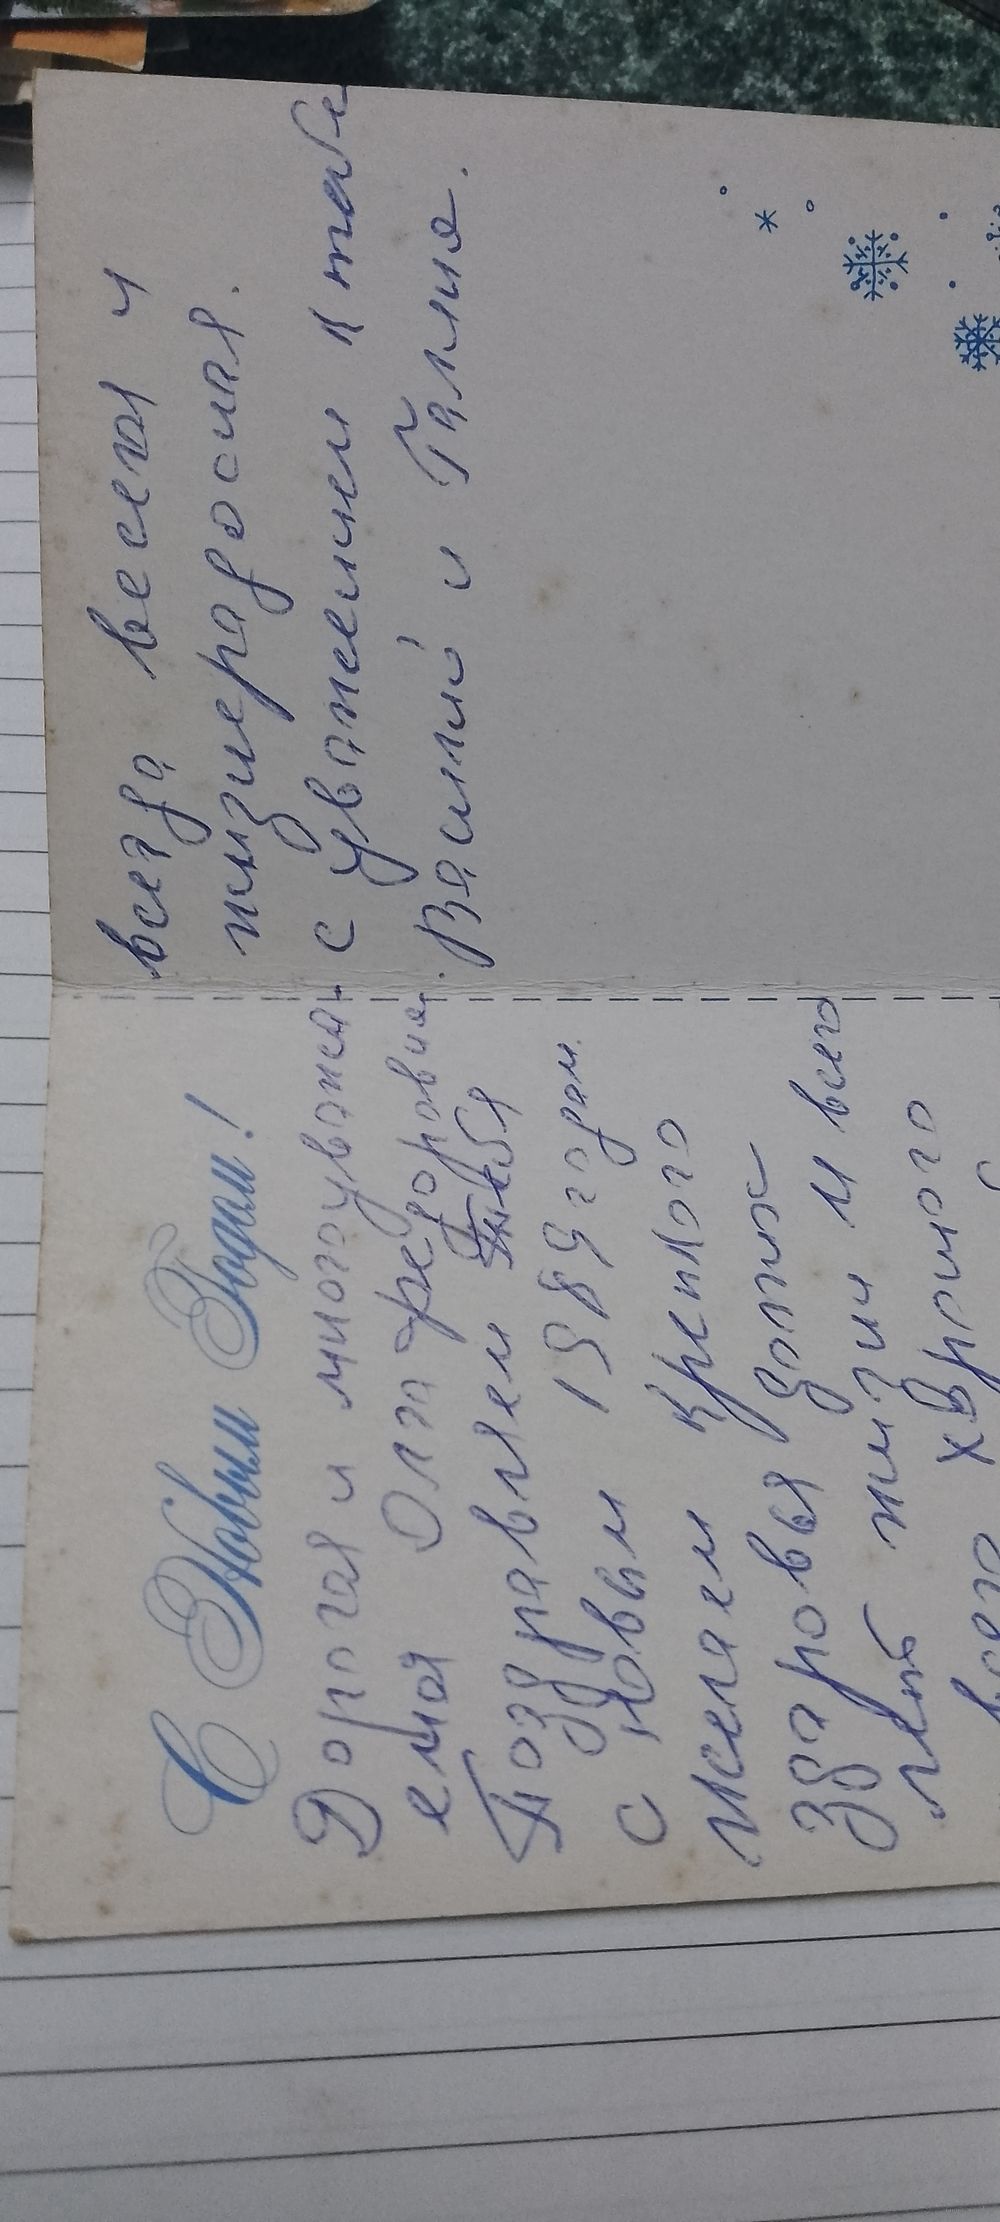 С Новым Годом!
Дорогая и многоуважа
емая Олга Федоровна.
Поздравляем тебя
с Новым 1989 годом.
желаем крепкого
здаровья долгих
лет жизни и всего
всего хорошого
всегда весела и
жизнерадосная.
с уважением к тебе
Василий и Галина.